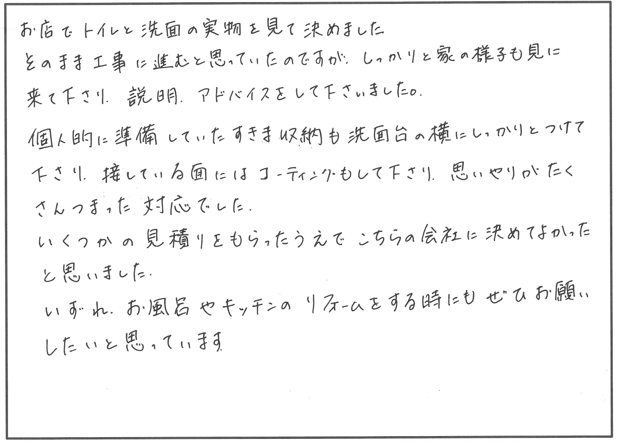 お店でトイレと洗面の実物を見て決めました
そのまま工事に進むと思っていたのですが、しっかりと家の様子も見に
来て下さり、説明、アドバイスをして下さいました。
個人的に準備していたすきま収納も洗面台の横にしっかりとつけて
下さり、接している面にはコーティングもして下さり、思いやりがたく
さんつまった対応でした。
いくつかの見積りをもらったうえでこちらの会社に決めてよかった
と思いました。
いずれ、お風呂やキッチンのリフォームをする時にもぜひお願い
したいと思っています